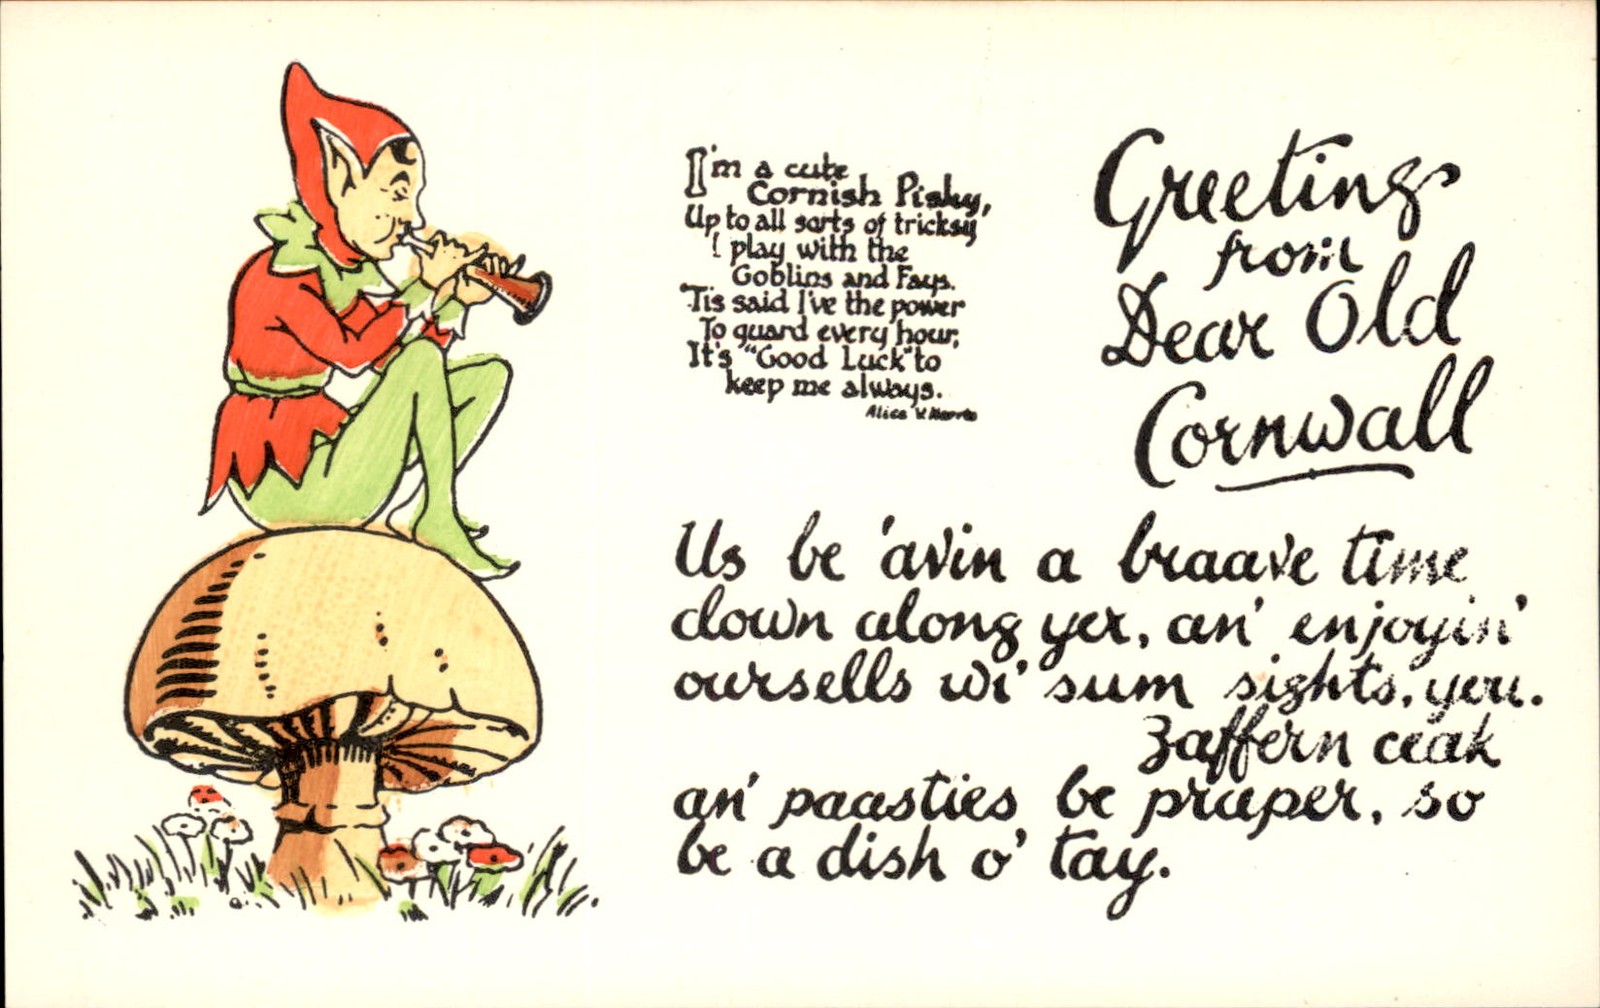 I'm a cute
Cornish Pisky,
Up to all sorts of tricksy
I play with the
Goblins and Fays.
'Tis said I've the power
To guard every hour,
It's "Good Luck" to
keep me always.
Alice V. Norris
Greetings
from
Dear Old
Cornwall
Us be 'avin a braave time
down along yer, an' enjoyin'
oursells wi' sum sights, you.
Zaffern ceak
an' paasties be praper, so
be a dish o' tay.